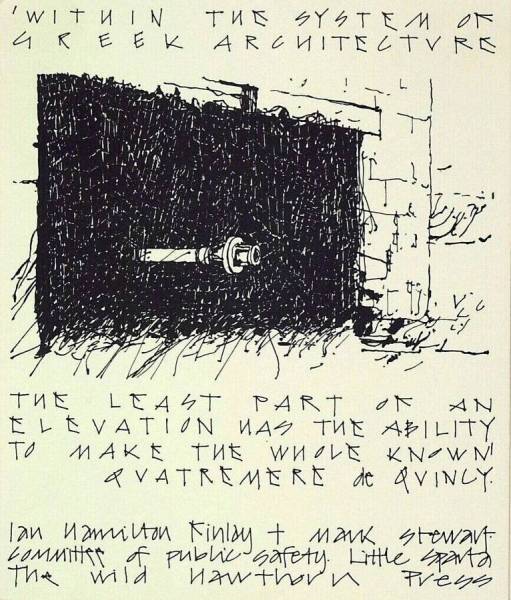 'WITHIN THE SYSTEM OF
GREEK ARCHITECTVRE
THE LEAST PART OF AN
ELEVATION HAS THE ABILITY
TO MAKE THE WHOLE KNOWN'
QVATREMERE de QVINCY.
Ian Hamilton Finlay + Mark Stewart.
Committee of public safety. Little Sparta
The wild Hawthorn Press